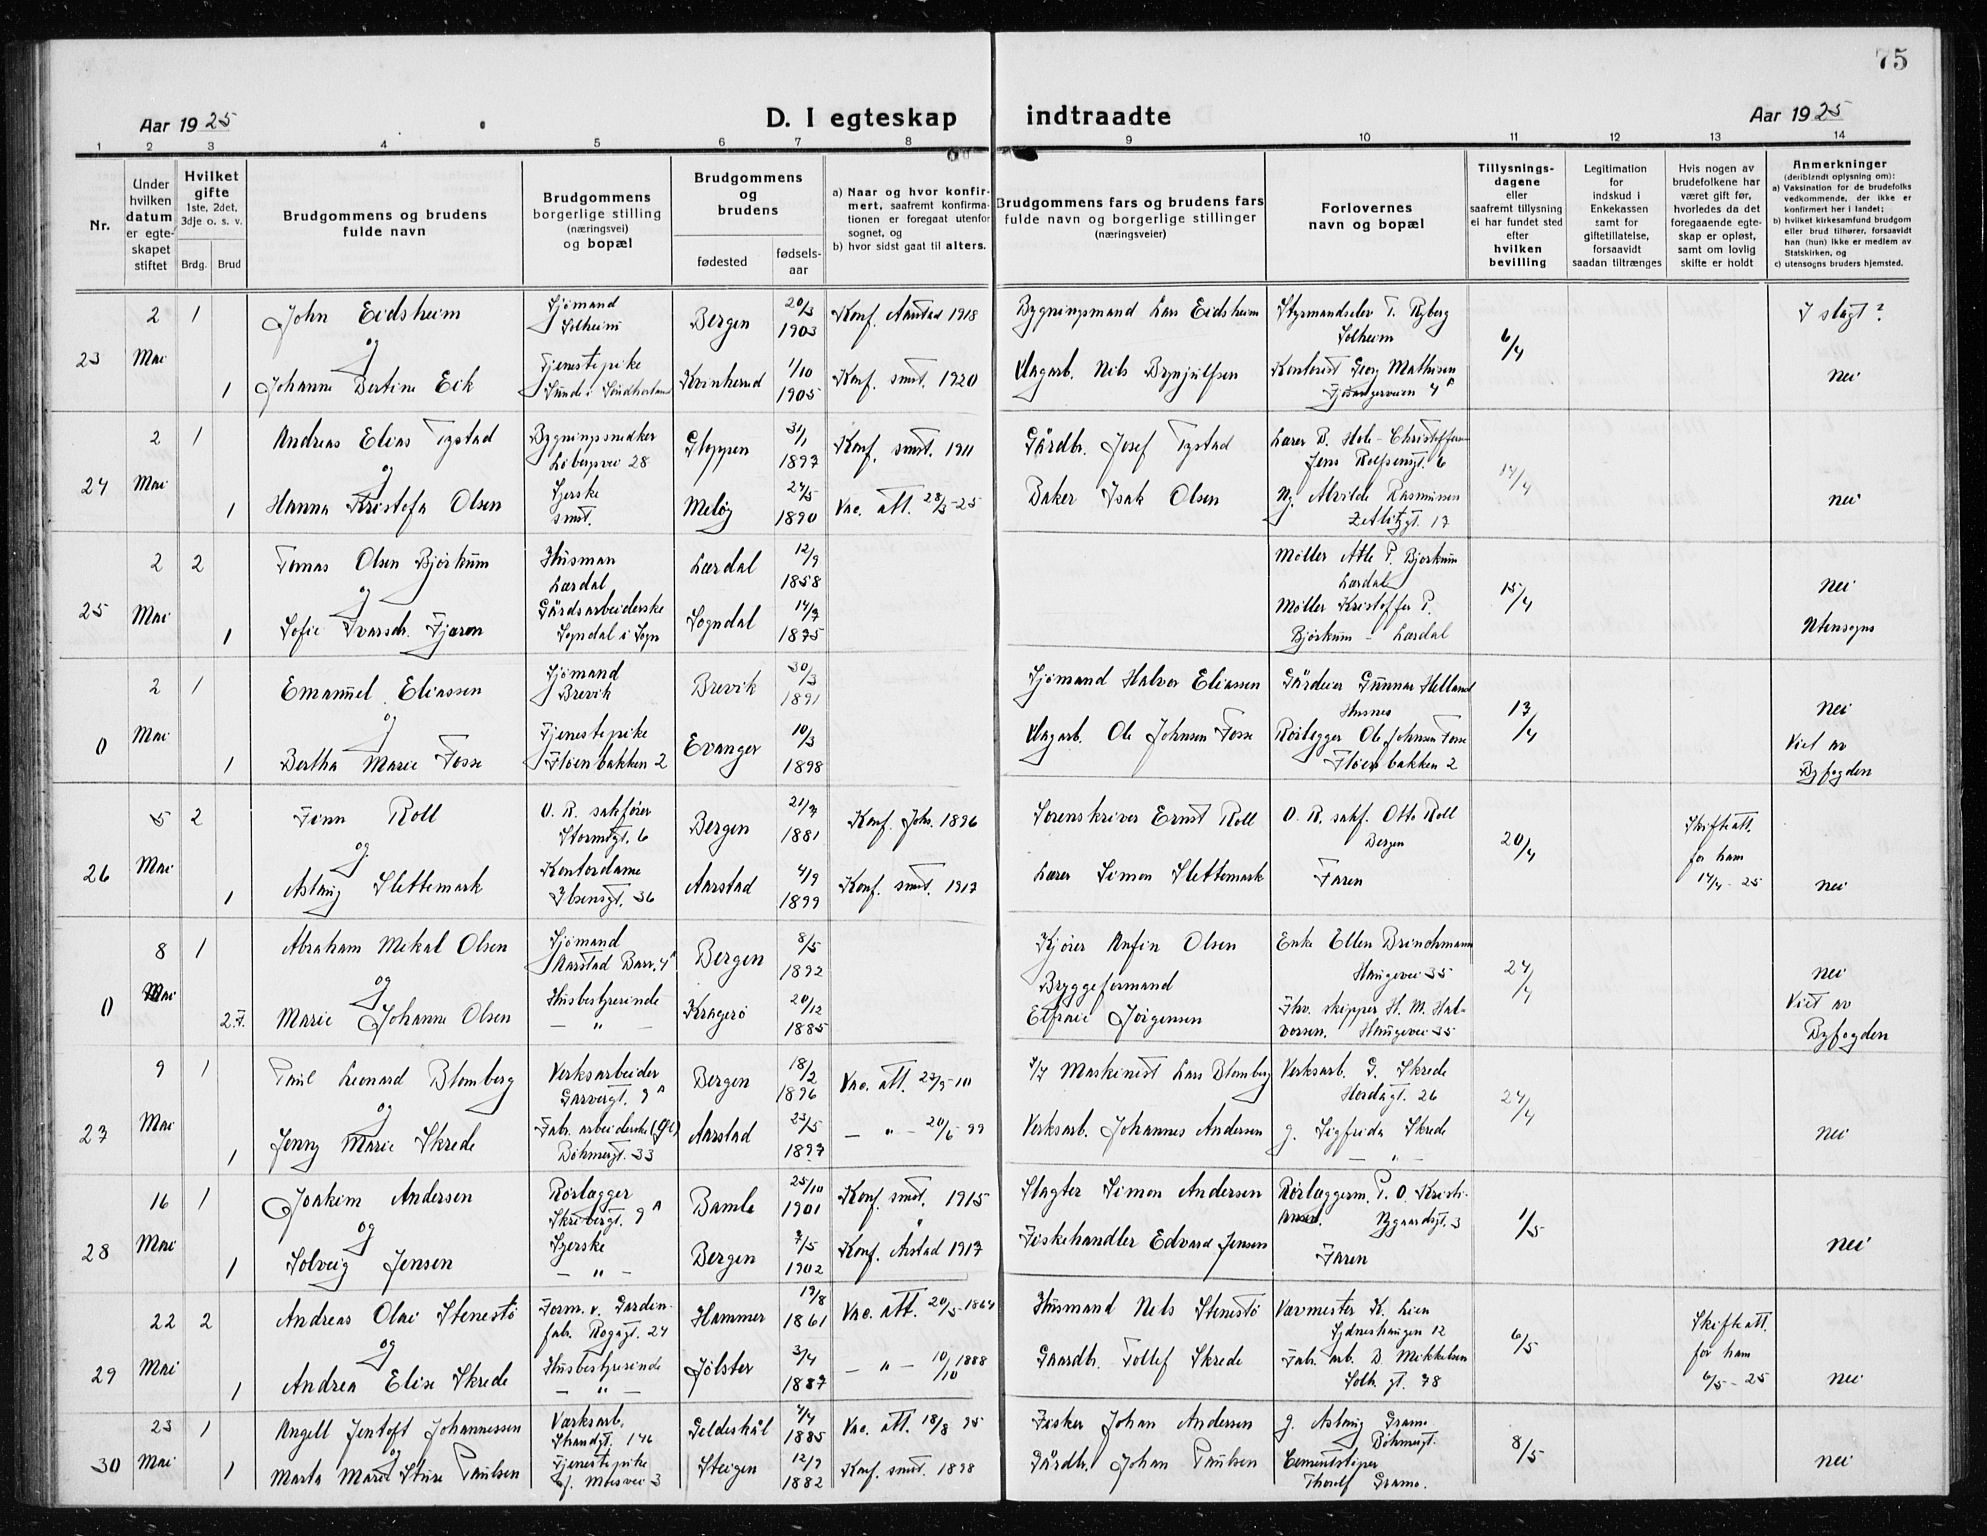 75
Aar 1925
D. I egteskap indtraadte
Aar 1925
1 2 3 4 5 6 7 8 9 10 11 12 13 14
Nr.
Under hvilken datum er egteskapet stiftet
Hvilket gifte 1ste, 2det, 3dje o. s. v.
Brdg. Brud
Brudgommens og brudens fulde navn
Brudgommens borgerlige stilling (næringsvei) og bopæl
Brudgommens og brudens
fødested
fødselsaar
a) Naar og hvor konfirmert, saafremt konfirmationen er foregaat utenfor sognet, og
b) hvor sidst gaat til alters.
Brudgommens fars og brudens fars fulde navn og borgerlige stillinger (næringsveier)
Forlovernes navn og bopæl
Tillysningsdagene eller saafremt tillysning ei har fundet sted efter hvilken bevilling
Legitimation for indskud i Enkekassen samt for giftetillatelse, forsaavidt saadan tiltrænges
Hvis nogen av brudefolkene har været gift før, hvorledes da det foregaaende egteskap er opløst, samt om lovlig skifte er holdt
Anmerkninger (deriblandt oplysning om):
a) Vaksination for de brudefolks vedkommende, der ikke er konfirmert her i landet;
b) hvilket kirkesamfund brudgom eller brud tilhører, forsaavidt han (hun) ikke er medlem av Statskirken, og
c) utensogns bruders hjemsted.
23 2 Mai 1 John Eidsheim Sjømand Solheim Bergen 20/3 1903 Konf. Aarstad 1918 Bygningsmand Lars Eidsheim Styrmandselev T. Ryberg Solheim 6/4 I slagt?
og
1 Johanne Bertine Eik Tjenestepike Sunde i Søndhorland Kvinherred 1/10 1905 Konf. smst. 1920 Ungarb. Nils Brynjulfsen Kontorist Georg Mathisen Fjøsangerveien 4 A nei
24 2 Mai 1 Andreas Elias Tystad Bygningssnedker Løbergsvei 28 Gloppen 31/1 1897 Konf. smst. 1911 Gårdbr. Josef Tystad Lærer B. Hole-Christoffersen Jens Rolfsensgt. 6 14/4
og
1 Hanna Kristofa Olsen Syerske smst. Meløy 24/5 1890 Vac. att. 28/3-25 Baker Isak Olsen Ug. Alvilde Rasmussen Zetlitzgt. 17 nei
25 2 Mai 2 Tomas Olsen Bjørkum Husman Lærdal Lærdal 12/9 1858 Møller Atle P. Bjørkum Lærdal 15/4 nei
og
1 Sofie Ivarsdr. Fjæren Gårdsarbeiderske Sogndal i Sogn Sogndal 14/7 1875 Møller Kristoffer P. Bjørkum - Lærdal Utensogns
0 2 Mai 1 Emanuel Eliassen Sjømand Brevik Brevik 30/3 1891 Sjømand Halvor Eliassen Gårdeier Gunnar Helland Husnes 13/4 nei
og
1 Bertha Marie Fosse Tjenestepike Fløenbakken 2 Evanger 10/3 1898 Ungarb. Ole Johnsen Fosse Rørlegger Ole Johnsen Fosse Fløenbakken 2 Viet av Byfogden
26 5 Mai 2 Finn Roll O. R. sakfører Stormsgt. 6 Bergen 21/7 1881 Konf. Joh. 1896 Sorenskriver Ernst Roll O. R. sakf. Otto Roll Bergen 20/4 Skifteatt. for ham 17/4-25
og
1 Aslaug Slettemark Kontordame Ibsensgt. 36 Aarstad 4/9 1899 Konf. smst. 1917 Lærer Simon Slettemark Faren nei
0 8 Mai 1 Abraham Mekal Olsen Sjømand Aarstad Barr. 4 A Bergen 8/5 1892 Kjører Anfin Olsen Enke Ellen Brinchmann Haugevei 35 27/4 nei
og
2.F. Marie Johanne Olsen Husbestyrerinde - " - Kragerø 20/12 1885 Bryggeformand Elfraie Jørgensen Fhv. skipper H. M. Halvorsen. Haugevei 35 Viet av Byfogden
27 9 Mai 1 Paul Leonard Blomberg Verksarbeider Garvergt. 9 A Bergen 18/2 1896 Vac. att. 27/9-10 Maskinist Lars Blomberg Verksarb. G. Skrede Hordagt. 26 27/4
og
1 Jenny Marie Skrede Fabr. arbeiderske Bøhmergt. 33 Aarstad 23/5 1897 - " - 20/6 99 Verksarb. Johannes Andersen g. Sigfrida Skrede - " - nei
28 16 Mai 1 Joakim Andersen Rørlægger Skribergt. 9 A Bamle 25/10 1901 Konf. smst. 1915 Slagter Simon Andersen Rørlæggerm. P. O. Kristiansen. Nygaardsgt. 3 1/5
og
1 Solveig Jensen Syerske - " - Bergen 7/5 1902 Konf. Årstad 1917 Fiskehandler Edvard Jensen Faren nei
29 22 Mai 2 Andreas Olai Stenestø Form. v. Gardinfabr. Rogagt. 24 Hammer 19/8 1861 Vac. att. 20/5-1864 Husmand Nils Stenestø Vævmester K. Lien Sydneshaugen 12 6/5 Skifteatt. for ham 6/5-25
og
1 Andrea Elise Skrede Husbestyrerinde - " - Jølster 3/4 1887 - " - 10/10 1888 Gaardbr. Tollef Skrede Fabr. arb. B. Mikkelsen Solh. gt. 78 nei
30 23 Mai 1 Angell Jentoft Johannessen Værksarb. Strandgt. 146 Gildeskål 4/4 1885 Vac. att. 18/8 95 Fisker Johan Andersen g. Aslaug Gramo Bøhmergt. 8/5
og
1 Marta Marie Sture Paulsen Tjenestepike C. J. Moesvei 3 Steigen 12/9 1882 Konf. smst. 1898 Gårdbr. Johan Paulsen Cementstøper Thoralf Gramo. nei